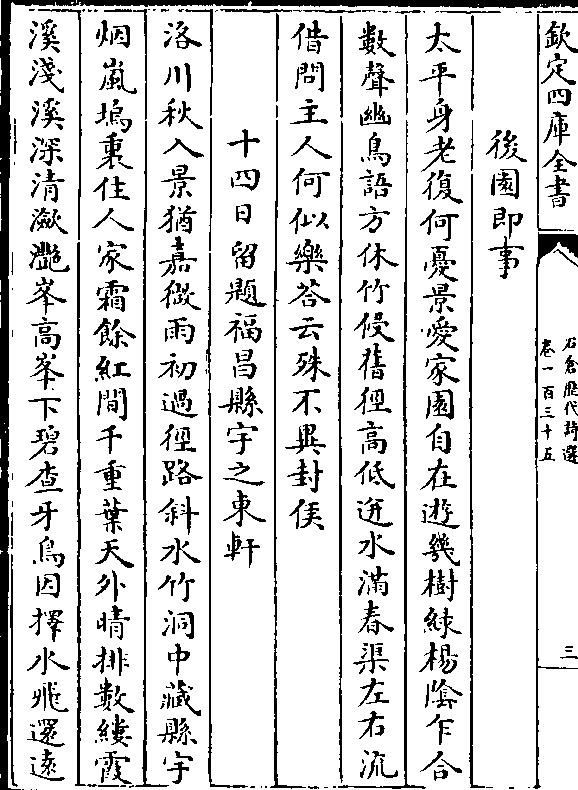 欽定四庫全書
石倉歷代詩選
卷一百三十五
三
後園即事
太平身老復何憂景愛家園自在遊幾樹綠楊陰乍合
數聲幽鳥語方休竹侵舊徑高低迸水滿春渠左右流
借問主人何似樂答云殊不異封侯
十四日留題福昌縣宇之東軒
洛川秋入景猶嘉微雨初過徑路斜水竹洞中藏縣宇
烟嵐塢裏住人家霜餘紅間千重葉天外晴排數縷霞
溪淺溪深清瀲灩峯高峯下碧查牙鳥因擇水飛還遠